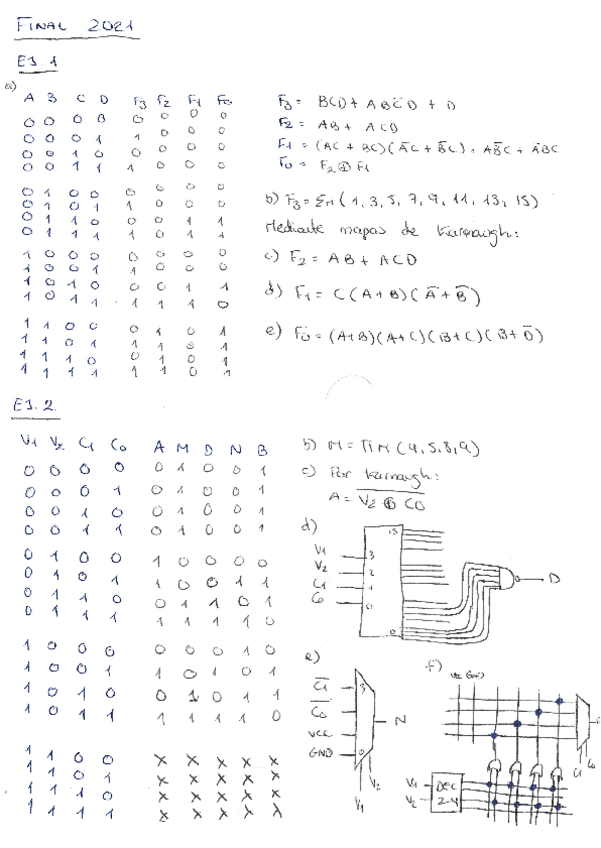 FINAL 2021
EJ. 1
a)
A B C D F3 F2 F1 F0
0 0 0 0 0 0 0 0
0 0 0 1 1 0 0 0
0 0 1 0 0 0 0 0
0 0 1 1 1 0 0 0
0 1 0 0 0 0 0 0
0 1 0 1 1 0 0 0
0 1 1 0 0 0 1 1
0 1 1 1 1 0 1 1
1 0 0 0 0 0 0 0
1 0 0 1 1 0 0 0
1 0 1 0 0 0 1 1
1 0 1 1 1 1 1 0
1 1 0 0 0 1 0 1
1 1 0 1 1 1 0 1
1 1 1 0 0 1 0 1
1 1 1 1 1 1 0 1
F3 = BCD + ABC̄D + D
F2 = AB + ACD
F1 = (AC + BC)(ĀC + B̄C) + AB̄C + ĀBC
F0 = F2 ⊕ F1
b) F3 = Σm (1, 3, 5, 7, 9, 11, 13, 15)
Mediante mapas de Karnaugh:
c) F2 = AB + ACD
d) F1 = C(A+B)(Ā+B̄)
e) F0 = (A+B)(A+C)(B+C)(B+D̄)
EJ. 2
V1 V2 C1 C0 A M D N B
0 0 0 0 0 1 0 0 1
0 0 0 1 0 1 0 0 1
0 0 1 0 0 1 0 0 1
0 0 1 1 0 1 0 0 1
0 1 0 0 1 0 0 0 0
0 1 0 1 1 0 0 1 1
0 1 1 0 0 1 1 0 1
0 1 1 1 1 1 1 1 0
1 0 0 0 0 0 0 1 0
1 0 0 1 1 0 1 0 1
1 0 1 0 0 1 0 1 1
1 0 1 1 1 1 1 1 0
1 1 0 0 X X X X X
1 1 0 1 X X X X X
1 1 1 0 X X X X X
1 1 1 1 X X X X X
b) M = ΠM (4, 5, 8, 9)
c) Por Karnaugh:
A = V2 ⊕ C0
d)
15
V1 3
V2 2
C1 1
C0 0
0
D
e)
C1 3
C0
VCC
GND 0
N
V1 V2
f)
C1 C0
V1
V2
DEC
2-4